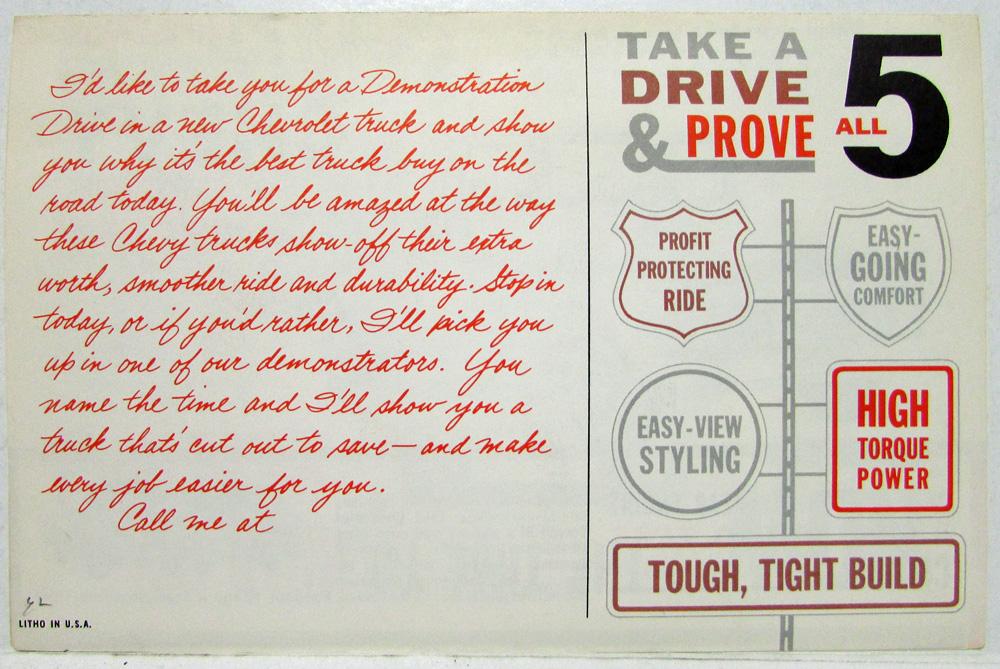 I'd like to take you for a Demonstration
Drive in a new Chevrolet truck and show
you why it's the best truck buy on the
road today. You'll be amazed at the way
these Chevy trucks show-off their extra
worth, smoother ride and durability. Stop in
today, or if you'd rather, I'll pick you
up in one of our demonstrators. You
name the time and I'll show you a
truck that's cut out to save—and make
every job easier for you.
Call me at
LITHO IN U.S.A.
TAKE A
DRIVE
& PROVE
ALL 5
PROFIT
PROTECTING
RIDE
EASY-
GOING
COMFORT
EASY-VIEW
STYLING
HIGH
TORQUE
POWER
TOUGH, TIGHT BUILD